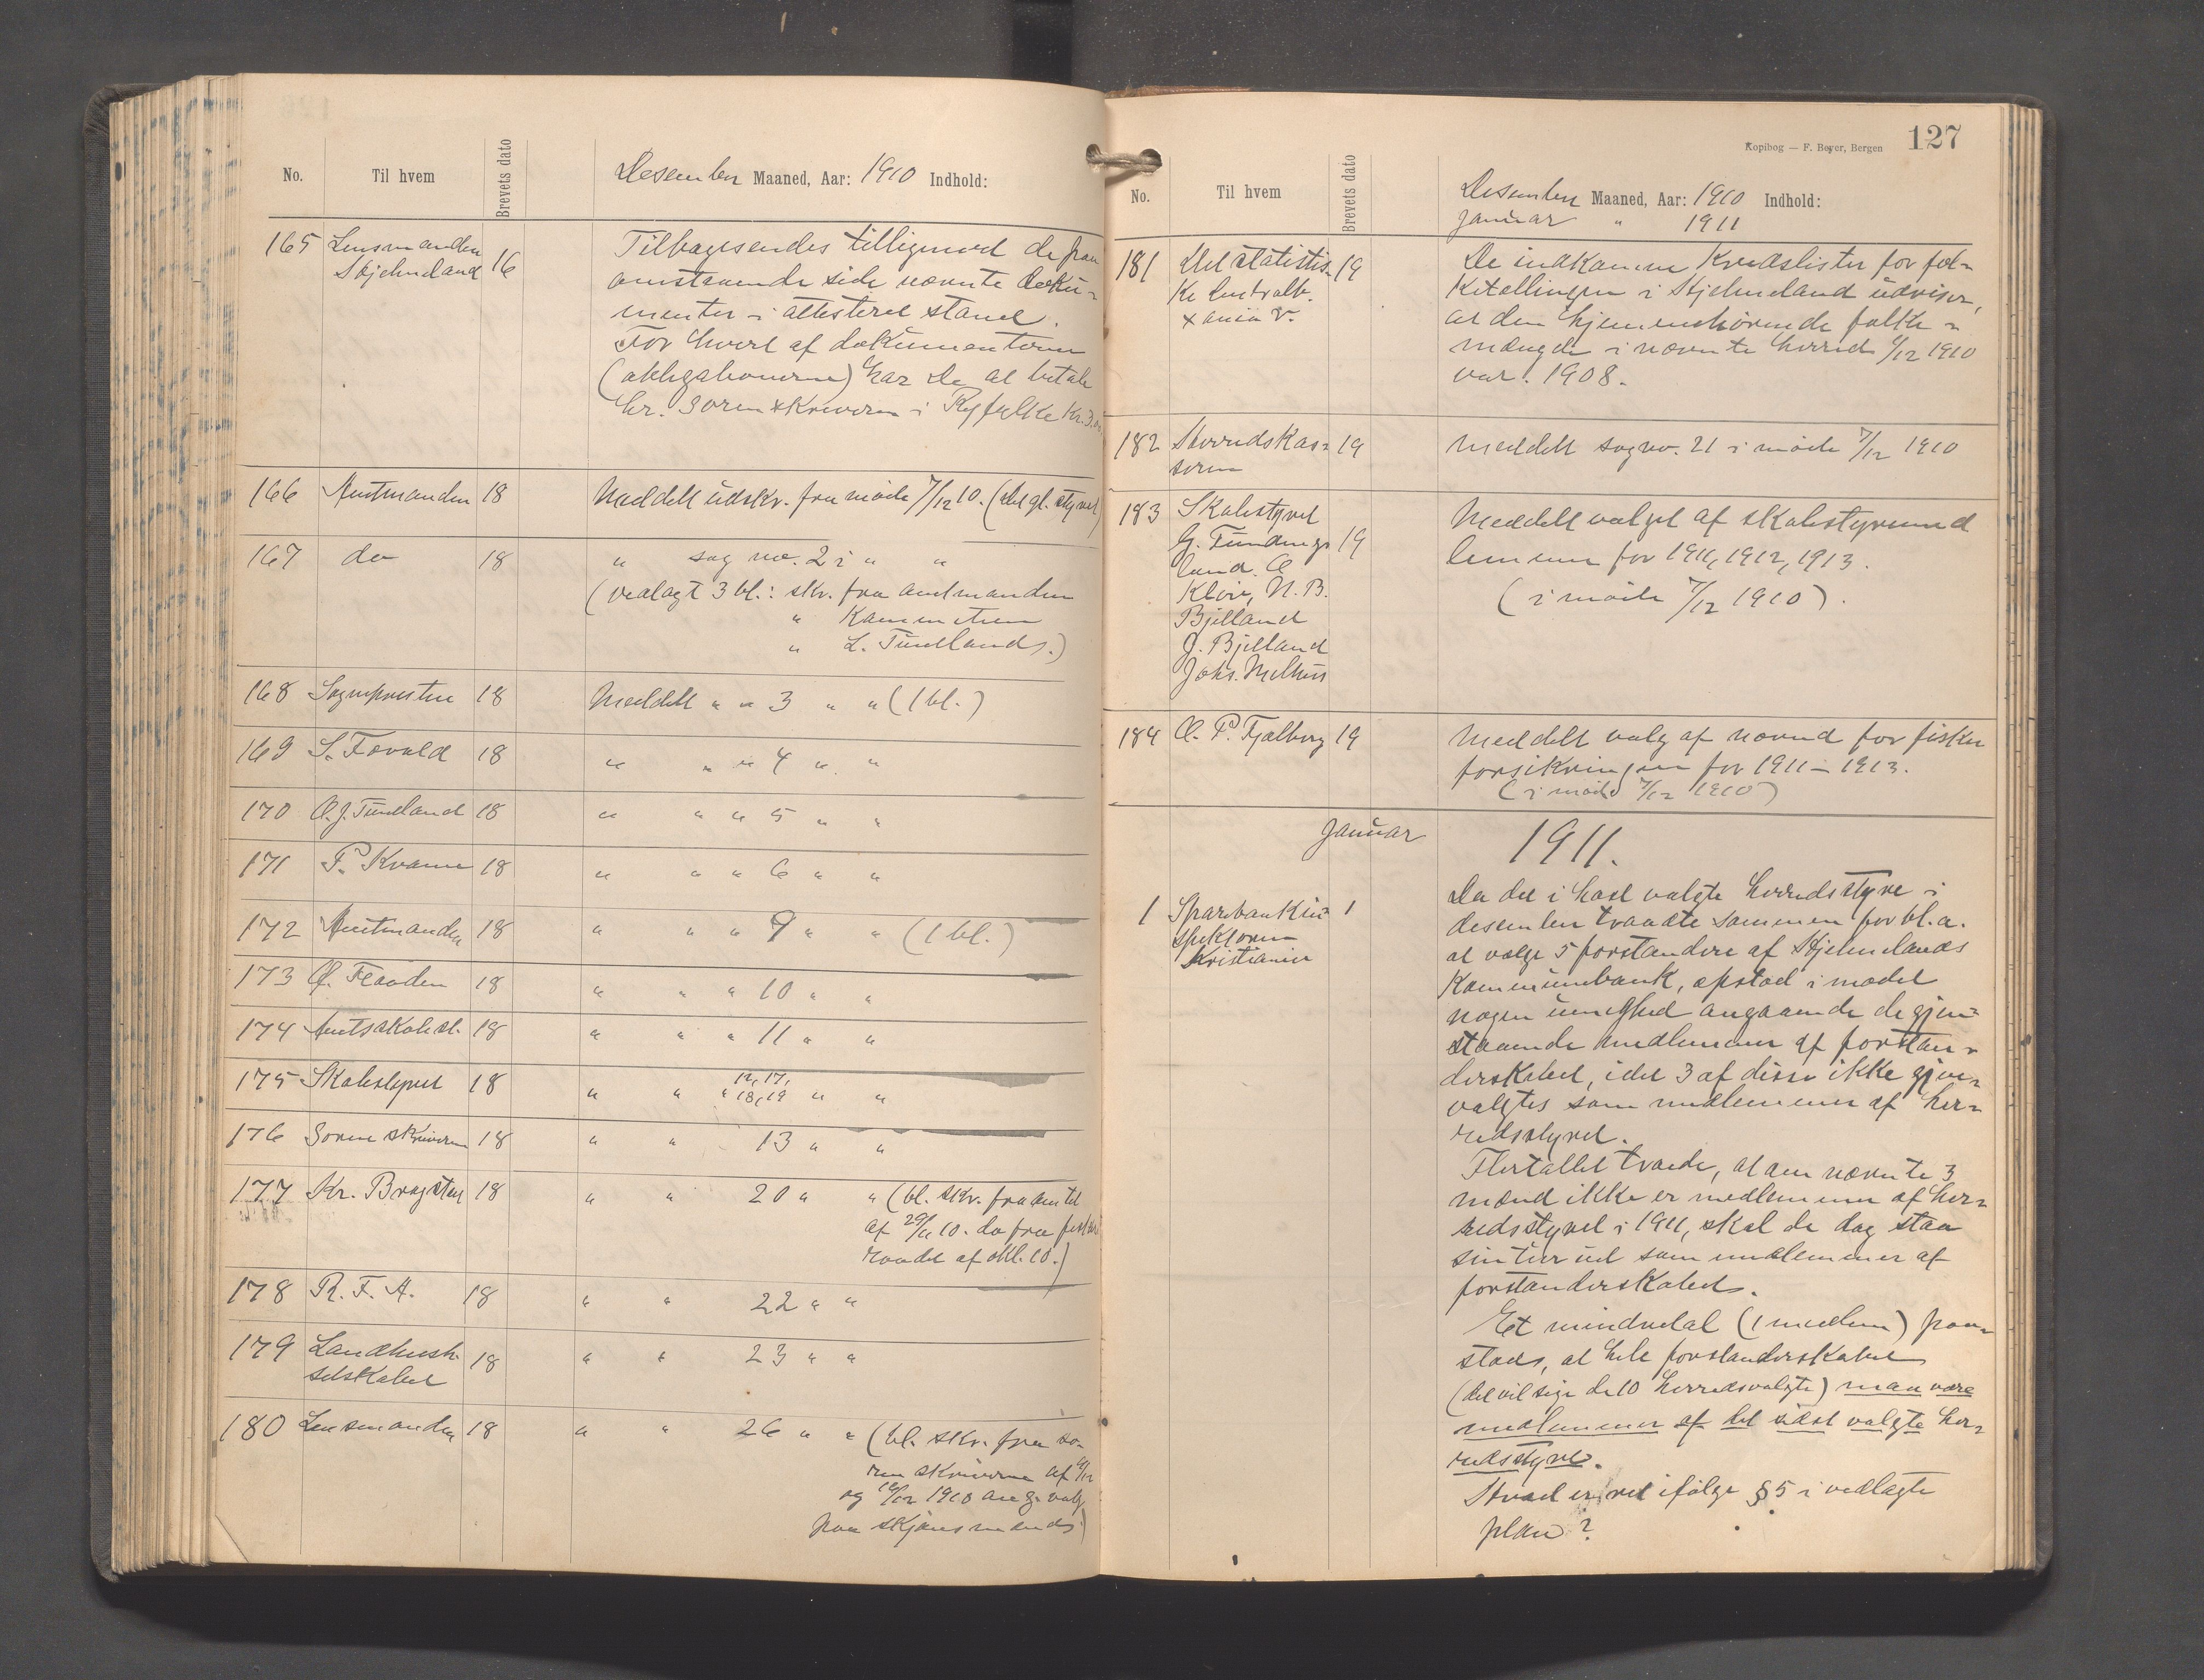 No. Til hvem Brevets dato Desember Maaned, Aar: 1910 Indhold:
165 Lensmanden Hjelmeland 16
Tilbagesendes tilligemed de paa
omstaaende side nævnte doku-
menter i attesteret stand.
For hvert af dokumenterne
(obligationerne) har De at betale
hr. Sorenskriveren i Ryfylke kr.
166 Amtmanden 18 Meddelt udskr. fra møde 7/12 10. (Det gl. styret)
167 do 18 " sag no. 2 i " "
(vedlagt 3 bl.: skr. fra amtmanden
" Kammeraten
" L. Tundlands.)
168 Sognepresten 18 Meddelt " " 3 " " (1 bl.)
169 S. Fevold 18 " " " 4 " "
170 O. J. Tundland 18 " " " 5 " "
171 P. Kvame 18 " " " 6 " "
172 Amtmanden 18 " " " 9 " " (1 bl.)
173 18 " " " 10 " "
174 Amtsskolest. 18 " " " 11 " "
175 Skolestyret 18 " " " 12, 17,
18, 19 " "
176 Sorenskriveren 18 " " 13 " "
177 Kr. 18 " " 20 " " (bl. skr. fra amtet
af 29/11 10. do fra fiskeri
raadet af okt. 10.)
178 R. F. A. 18 " " 22 " "
179 Landhush.
selskabet 18 " " 23 " "
180 Lensmanden 18 " " 26 " " (bl. skr. fra so-
renskriveren af
og 1910 ang. valg
paa skjønsmænds)
Kopibog — F. Beyer, Bergen 127
No. Til hvem Brevets dato Desember Maaned, Aar: 1910 Indhold:
Januar " 1911
181 Det statistis-
ke Centralb.
Xania V. 19
De indkomne Kredslister for fol-
ketællingen i Hjelmeland udviser,
at den hjemmehørende folke-
mængde i nævnte herred 1/12 1910
var: 1908.
182 Herredskas-
seren 19 Meddelt sag no. 21 i møde 7/12 1910
183 Skolestyret
G. Funnings
land. O
Kleive, N. B.
Bjelland
J. Bjelland
Johs. Melhus 19
Meddelt valget af skolestyremed
lemmer for 1911, 1912, 1913.
(i møde 7/12 1910).
184 O. P. Fjælberg 19 Meddelt valg af nævnd for fisker
forsikringen for 1911 – 1913.
(i møde 7/12 1910)
Januar 1911.
1 Sparebankin-
spektøren
Kristiania 1
Da det i høst valgte herredsstyre i
desember traadte sammen for bl.a.
at vælge 5 forstandere af Hjelmelands
Kommunebank, opstod i mødet
nogen uenighed angaaende de gjen-
staaende medlemmer af forstan-
derskabet, idet 3 af disse ikke gjen-
valgtes som medlemmer af her-
redsstyret.
Flertallet troede, at om nævnte 3
mænd ikke er medlemmer af her-
redsstyret i 1911, skal de dog staa
sin tur ud som medlemmer af
forstanderskabet.
Et mindretal (1 medlem) paa-
stod, at hele forstanderskabet
(det vil sige de 10 herredsvalgte) maa være
medlemmer af det sidst valgte her-
redsstyre.
Hvad er ret ifølge § 5 i vedlagte
plan?